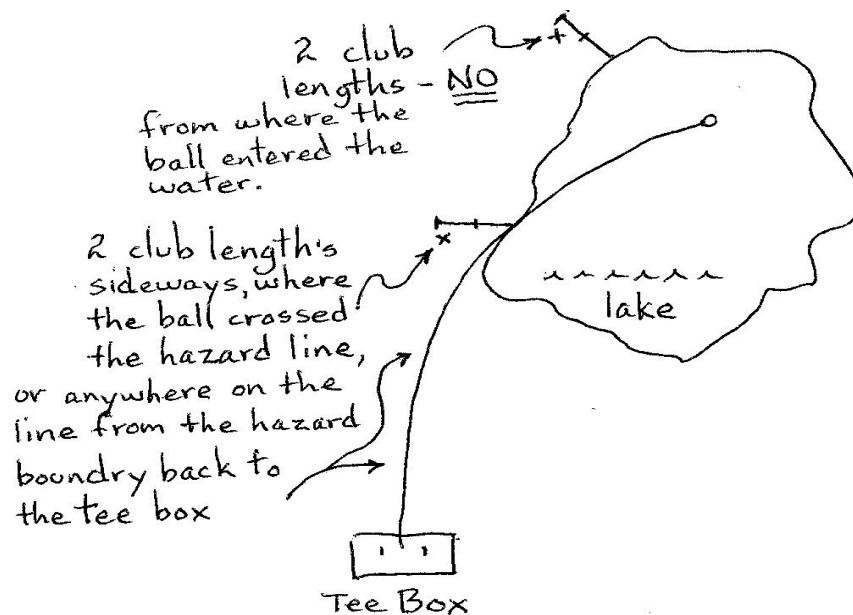 2 club
lengths - NO
from where the
ball entered the
water.
2 club length's
sideways, where
the ball crossed
the hazard line,
or anywhere on the
line from the hazard
boundry back to
the tee box
lake
Tee Box